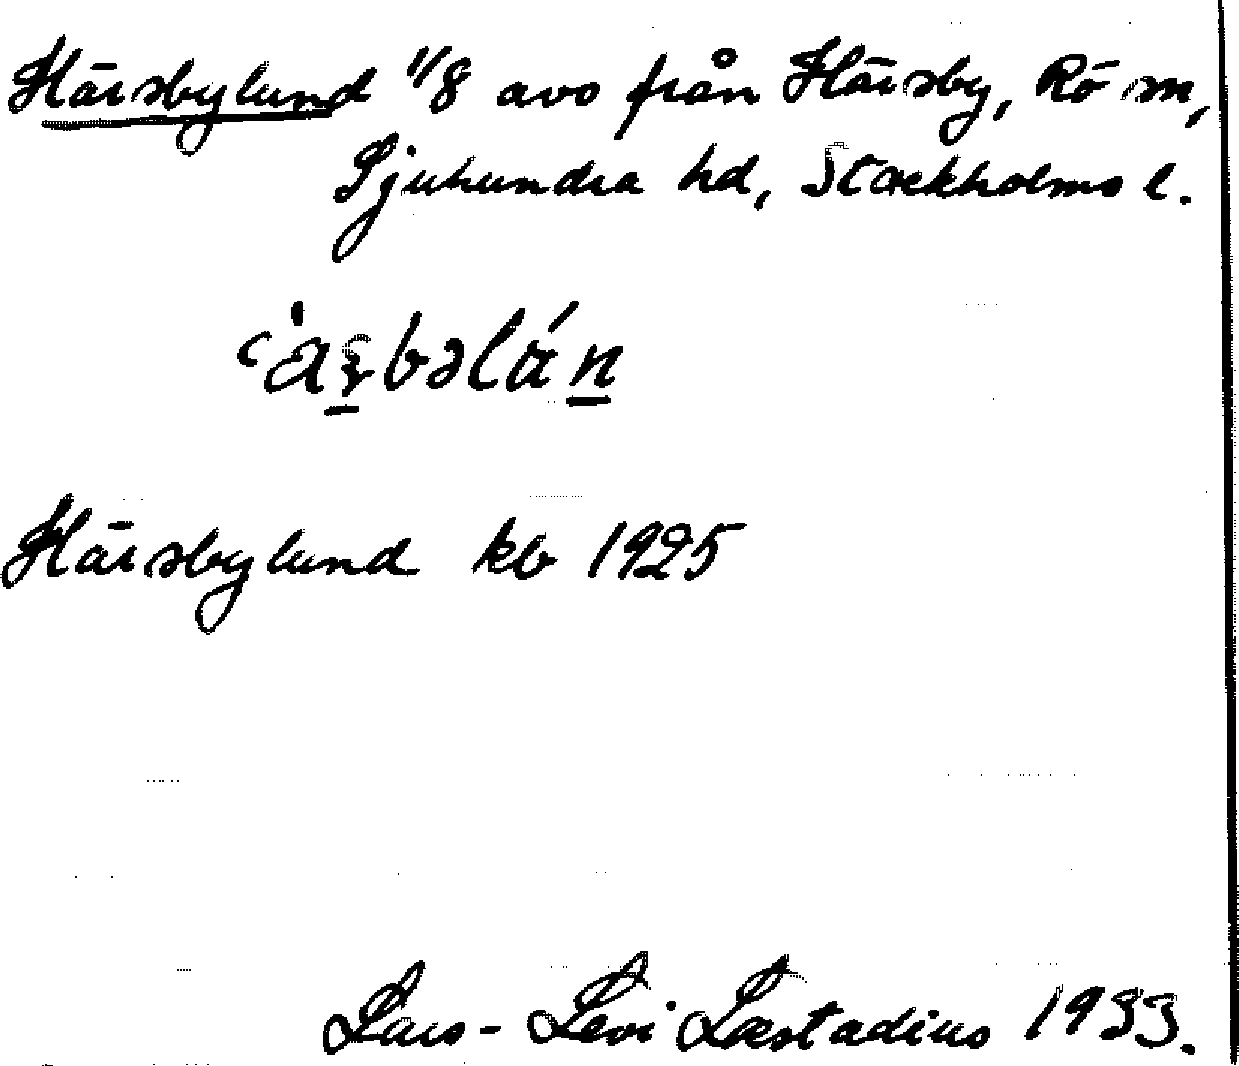 Härsbylund 1/8 avs från Härsby, Rö sn,
Sjuhundra hd, Stockholms l.
Härsbylund kb 1925
Lars-Levi Læstadius 1933.